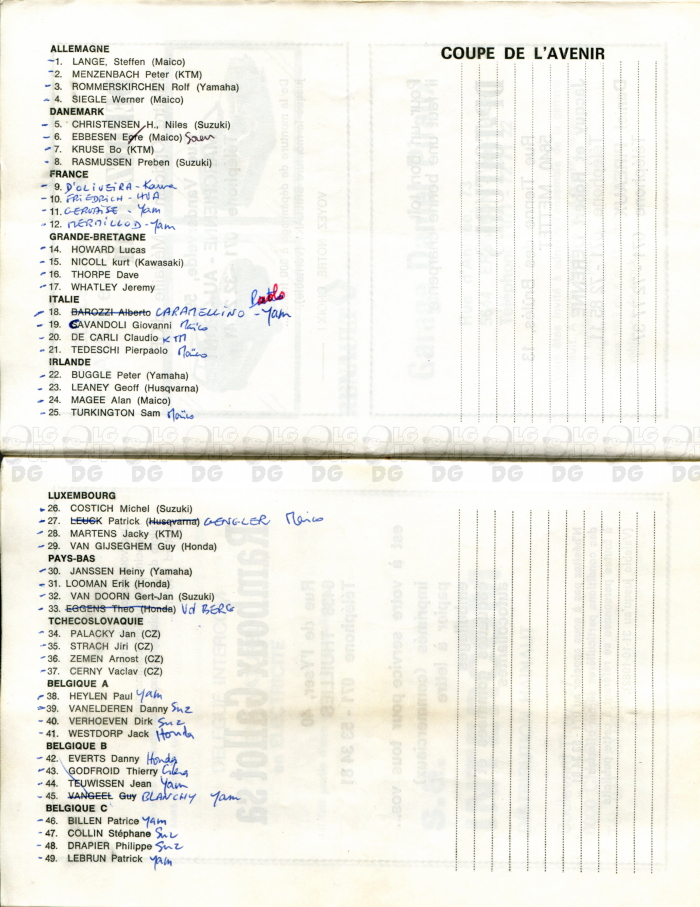 COUPE DE L'AVENIR
ALLEMAGNE
1. LANGE, Steffen (Maico)
2. MENZENBACH Peter (KTM)
3. ROMMERSKIRCHEN Rolf (Yamaha)
4. SIEGLE Werner (Maico)
DANEMARK
5. CHRISTENSEN H., Niles (Suzuki)
6. EBBESEN (Maico) Soren
7. KRUSE Bo (KTM)
8. RASMUSSEN Preben (Suzuki)
FRANCE
9. D'OLIVEIRA - Kawa
10. FRIEDRICH - HVA
11. GERVAISE - Yam
12. MERMILLOD - Yam
GRANDE-BRETAGNE
14. HOWARD Lucas
15. NICOLL kurt (Kawasaki)
16. THORPE Dave
17. WHATLEY Jeremy
ITALIE Paolo
18. BAROZZI Alberto CARAMELLINO - Yam
19. CAVANDOLI Giovanni Maico
20. DE CARLI Claudio KTM
21. TEDESCHI Pierpaolo Maico
IRLANDE
22. BUGGLE Peter (Yamaha)
23. LEANEY Geoff (Husqvarna)
24. MAGEE Alan (Maico)
25. TURKINGTON Sam Maico
LUXEMBOURG
26. COSTICH Michel (Suzuki)
27. LEUCK Patrick (Husqvarna) GENGLER Maico
28. MARTENS Jacky (KTM)
29. VAN GIJSEGHEM Guy (Honda)
PAYS-BAS
30. JANSSEN Heiny (Yamaha)
31. LOOMAN Erik (Honda)
32. VAN DOORN Gert-Jan (Suzuki)
33. EGGENS Theo (Honda) Vd BERG
TCHECOSLOVAQUIE
34. PALACKY Jan (CZ)
35. STRACH Jiri (CZ)
36. ZEMEN Arnost (CZ)
37. CERNY Vaclav (CZ)
BELGIQUE A
38. HEYLEN Paul Yam
39. VANELDEREN Danny Suz
40. VERHOEVEN Dirk Suz
41. WESTDORP Jack Honda
BELGIQUE B
42. EVERTS Danny Honda
43. GODFROID Thierry
44. TEUWISSEN Jean Yam
45. VANGEEL Guy BLANCHY Yam
BELGIQUE C
46. BILLEN Patrice Yam
47. COLLIN Stéphane Suz
48. DRAPIER Philippe Suz
49. LEBRUN Patrick Yam